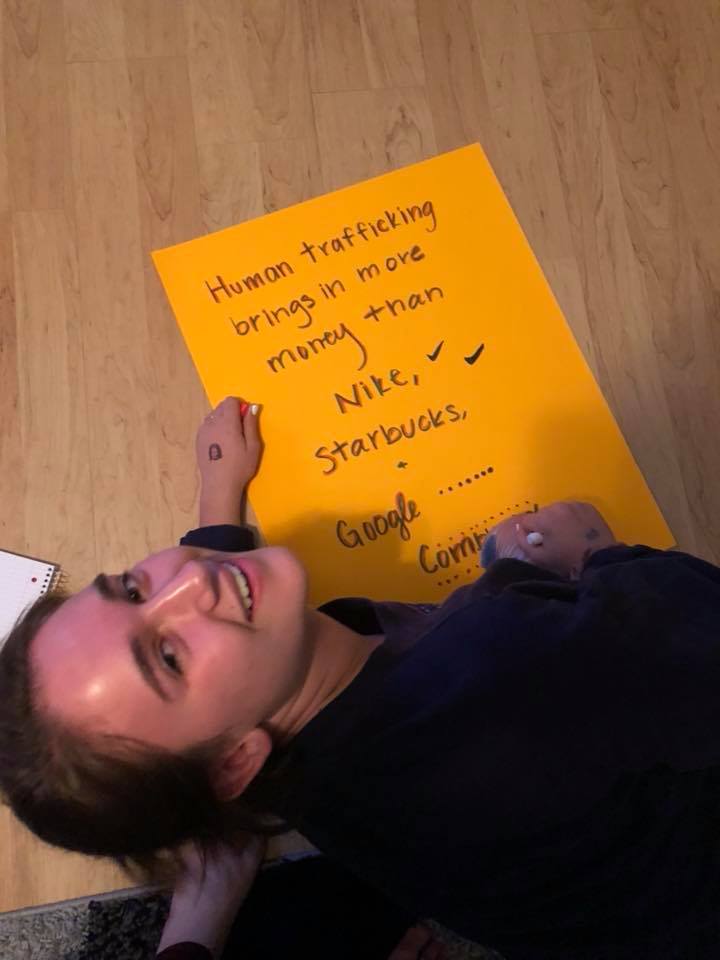 Human trafficking
brings in more
money than
Nike, ✓ ✓
Starbucks,
+
Google .......